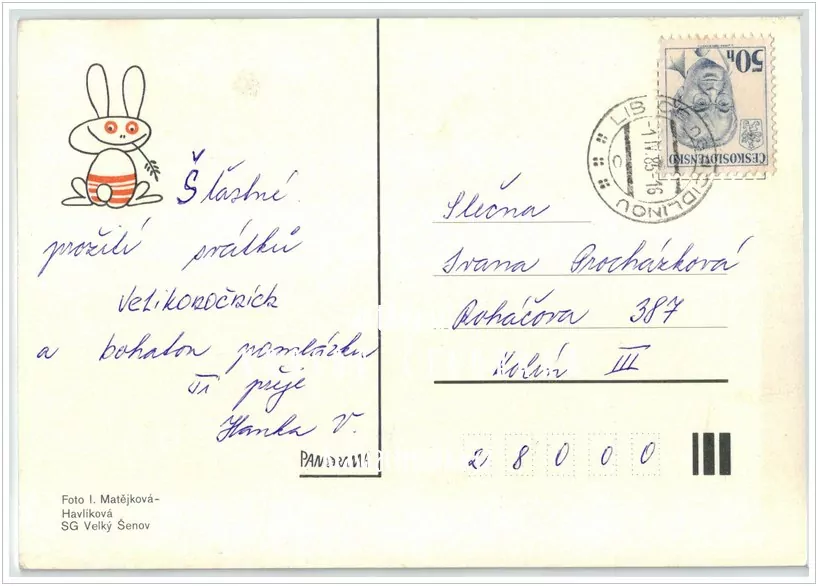 Šťastné
prožití svátků
VELIKONOČNÍCH
a bohatou pomlázku
Ti přeje
Hanka V.
PANORAMA
Foto I. Matějková-
Havlíková
SG Velký Šenov
50h
ČESKOSLOVENSKO
CIDLINOU
-1.IV.85-16
Slečna
Ivana Procházková
Roháčova 387
Kolín III
28000